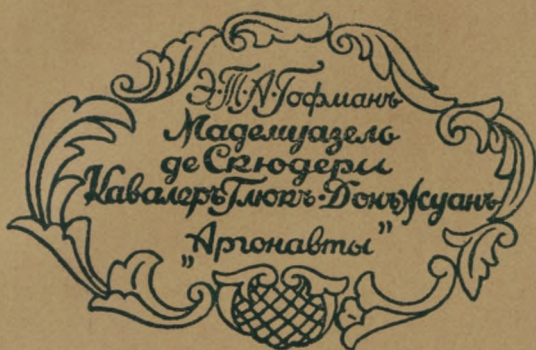 Э·Т·А·Гофманъ
Мадемуазель
де Скюдери
Кавалеръ Глюкъ·Донъ Жуанъ
„Аргонавты"